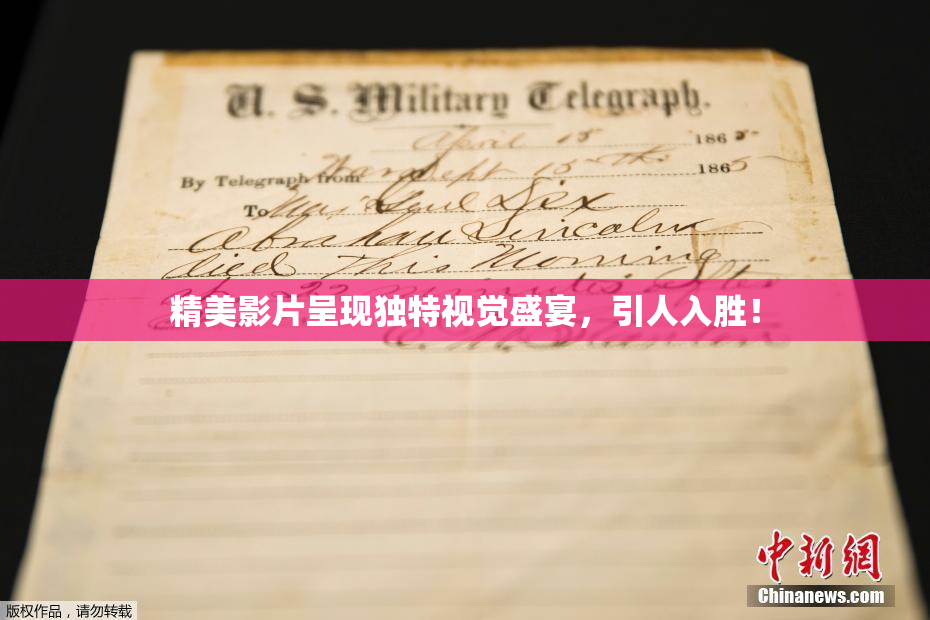 U. S. Military Telegraph.
April 15 1865
By Telegraph from War Dept 15th 1865
To Maj Genl Dix
Abraham Lincoln
died This Morning
at 22 minutes after
精美影片呈现独特视觉盛宴，引人入胜！
E. M. Stanton
中新网
Chinanews.com
版权作品，请勿转载